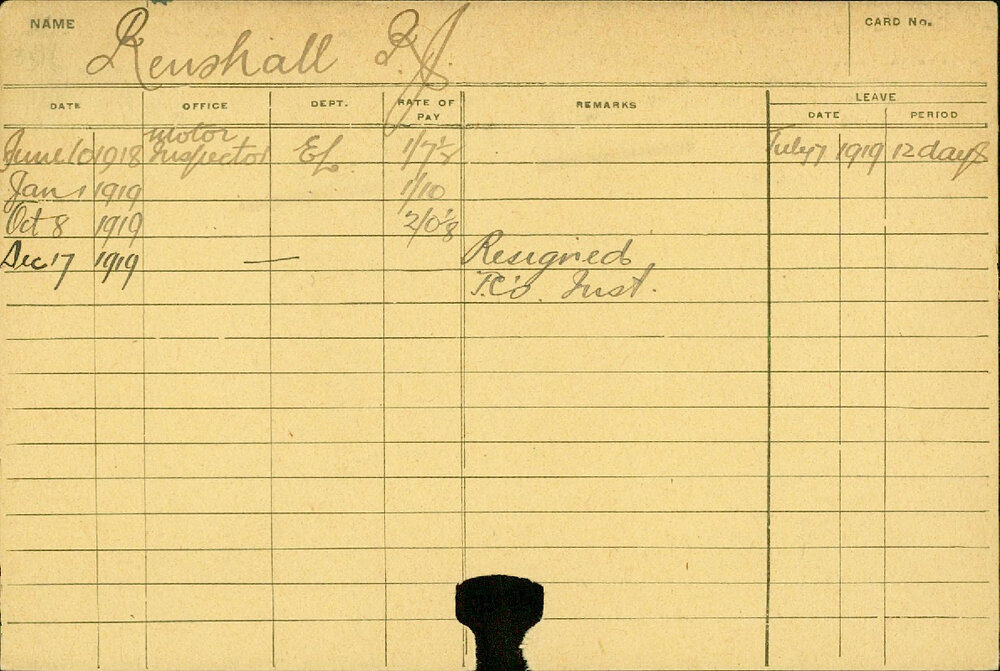 NAME
Renshall R.J.
CARD No.
DATE OFFICE DEPT. RATE OF PAY REMARKS LEAVE
DATE PERIOD
June 10 1918 Motor Inspector EL 1/7½ July 7 1919 12 days
Jan 1 1919 1/10
Oct 8 1919
Dec 17 1919 — Resigned
Inst.